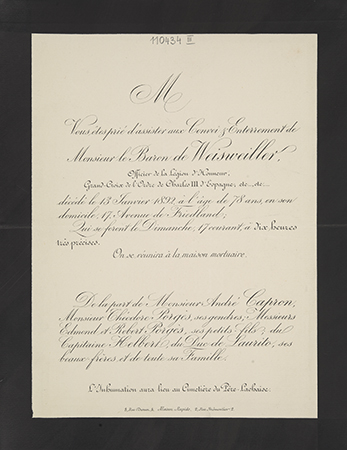 110434 III
M
Vous êtes prié d'assister aux Convoi & Enterrement de
Monsieur le Baron de Weisweiller,
Officier de la Légion d'Honneur,
Grand-Croix de l'Ordre de Charles III d'Espagne, &c., &c.
décédé le 13 Janvier 1892 à l'âge de 78 ans, en son
domicile, 17, Avenue de Friedland;
Qui se feront le Dimanche, 17 courant, à dix heures
très précises.
On se réunira à la maison mortuaire.
De la part de Monsieur André Capron,
Monsieur Théodore Porgès, ses gendres; Messieurs
Edmond et Robert Porgès, ses petits fils; du
Capitaine Helbert, du Duc de Laurito, ses
beaux-frères, et de toute sa Famille.
L'Inhumation aura lieu au Cimetière du Père-Lachaise.